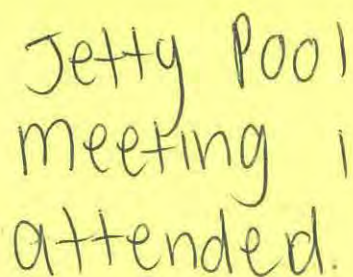 Jetty Pool
meeting i
attended.